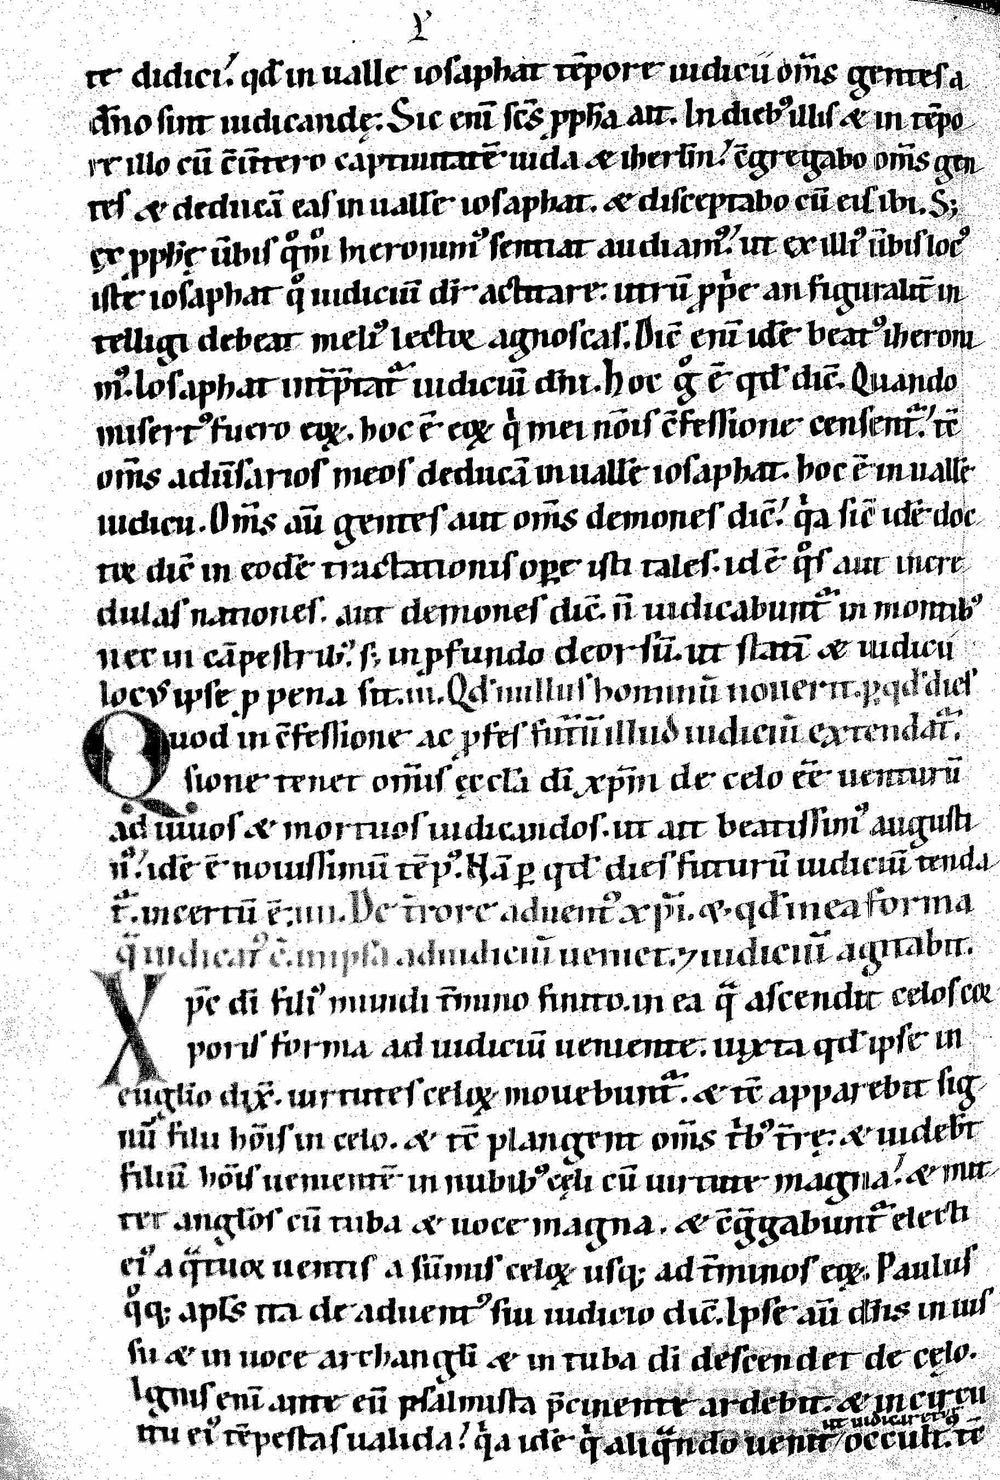 te didici. qd̄ in ualle iosaphat tēpore iudicii om̄s gentes a
dn̄o sint iudicandę. Sic enī sc̄s ꝓpħa ait. In dieb᷒ illis & in tēpo
re illo cū c̄ūtero captiuitatē iuda & iherlm̄! c̄gregabo om̄s gen
tes & deducā eas in ualle iosaphat. & disceptabo cū eis ibi. S;
ꝓpħię ūbis qͦm̊ hieronim᷒ sentiat audiam᷒! ut ex illi᷒ ūbis loc᷒
iste iosaphat qͦ iudiciū dr̄ actitare. utrū ꝓp̄e an figuralit̄ in
telligi debeat meli᷒ lectoꝝ agnoscas. Dic̄ enī idē beat᷒ iheroni
m᷒. Iosaphat int̄p̄tat̄ iudiciū dn̄i. Hoc gͦ ē qd̄ dic̄. Quando
misert᷒ fuero eoꝝ. hoc ē eoꝝ qͥ mei nōis c̄fessione censent̄! tē
om̄s aduūsarios meos deducā in ualle iosaphat. hoc ē in ualle
iudicii. Om̄s aū gentes aut om̄s demones dic̄! qͥa sic̄ idē doc
toꝝ dic̄ in eodē tractationis oꝑe isti tales. id ē qͦs aut incre
dulas nationes. aut demones dic̄. n̄ iudicabunt̄ in montib᷒
nec in cāpestrib᷒. s; in ꝓfundo deorsū. ut statī & iudicii
locus ipse ꝑ pena sit. iii. Qd̄ nullus hominū nouerit. ꝑ qd̄ dies
Quod in c̄fessione ac ꝓfes futūū illud iudiciū extendat̄.
sione tenet om̄is ęccla dī xp̄m de celo eē uenturū
ad uiuos & mortuos iudicandos. ut ait beatissim᷒ augusti
n᷒! idē ē nouissimū tēp᷒. Nā ꝑ qd̄ dies futurū iudiciū tenda
t̄. incertū ē. iiii. De t̄rore aduent᷒ xp̄i. & qd̄ in ea forma
q̄ iudicat᷒ ē. in ipsa ad iudiciū ueniet. ⁊ iudiciū agitabit.
Xp̄c dī fili᷒ mundi t̄mino finito. in ea q̄ ascendit celos coꝝ
poris forma ad iudiciū ueniente. iuxta qd̄ ipse in
euglio dix̄. uirtutes celoꝝ mouebunt̄. & tē apparebit sig
nū filii hōis in celo. & tē plangent om̄s t̄b᷒ t̄rę. & uideb̄t
filiū hōis uenientē in nubib᷒ cęli cū uirtute magna! & mit
tet anglos cū tuba & uoce magna. & c̄g̃gabunt̄ electi
ei᷒ a q̄tuoꝝ uentis a sūmis celoꝝ usq; ad t̄minos eoꝝ. Paulus
qͦq; apl̄s ita de aduent᷒ sui iudicio dic̄. Ipse aū dn̄s in ius
su & in uoce archangli & in tuba dī descendet de cęlo.
Ignis enī ante eū psalmista p̄cinente ardebit. & in circu
ut iudicaret᷒
itu ei᷒ tēpestas ualida! qͥa idē qͥ aliq̄ndo uenit occult̄. tē